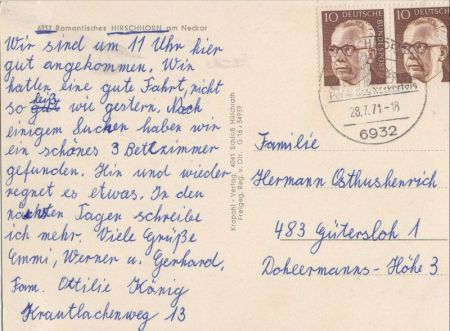 6932 Romantisches HIRSCHHORN am Neckar
Wir sind um 11 Uhr hier
gut angekommen. Wir
hatten eine gute Fahrt, nicht
so heiß wie gestern. Nach
einigem Suchen haben wir
ein schönes 3 Bettzimmer
gefunden. Hin und wieder
regnet es etwas. In den
nächsten Tagen schreibe
ich mehr. Viele Grüße
Emmi, Werner u. Gerhard.
Fam. Ottilie König
Krautlachenweg 13
Krapohl-Verlag 4041 Schloß Hülchrath
Freigeg. Reg. v. Obr. G 16/34939
10 DEUTSCHE BUNDESPOST
10 DEUTSCHE BUNDESPOST
Perle des Neckartals
28.7.71-18
6932
Familie
Hermann Osthushenrich
483 Gütersloh 1
Doheermanns-Höhe 3